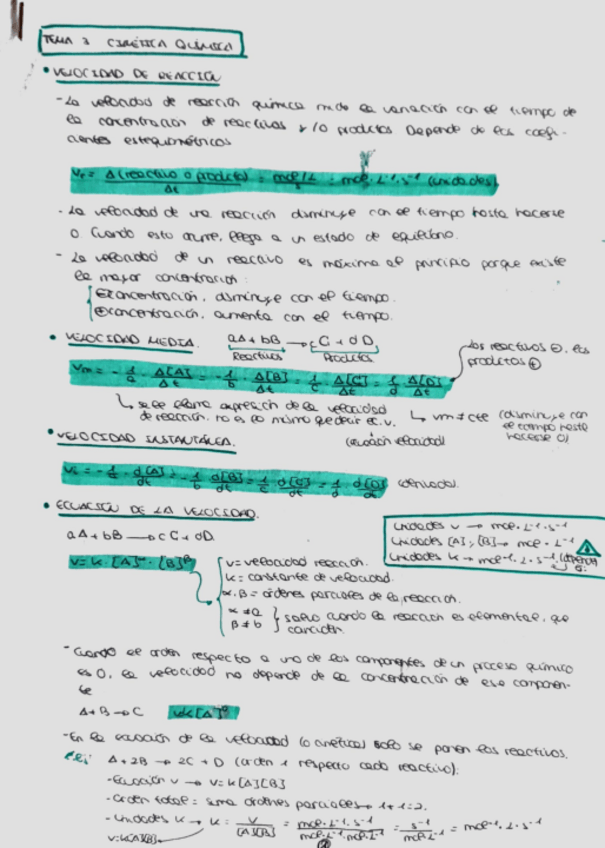 TEMA 3 CINÉTICA QUÍMICA
• VELOCIDAD DE REACCIÓN
- La velocidad de reacción química mide la variación con el tiempo de
la concentración de reactivos y/o productos Depende de los coefi-
cientes estequiométricos
Vr = Δ(reactivo o producto) / Δt = mol/L / s = mol · L⁻¹ · s⁻¹ (unidades)
- La velocidad de una reacción disminuye con el tiempo hasta hacerse
0. Cuando esto ocurre, llega a un estado de equilibrio.
- La velocidad de un reactivo es máxima al principio porque existe
la mayor concentración:
concentración, disminuye con el tiempo.
concentración, aumenta con el tiempo.
• VELOCIDAD MEDIA. aA + bB → cC + dD
Reactivos Productos
Los reactivos ⊖, los
productos ⊕
Vm = - 1/a · Δ[A]/Δt = - 1/b · Δ[B]/Δt = 1/c · Δ[C]/Δt = 1/d · Δ[D]/Δt
↳ se le llama expresión de la velocidad
de reacción. no es lo mismo que decir ec. v.
(ecuación velocidad)
↳ vm ≠ cte (disminuye con
el tiempo hasta
hacerse 0)
• VELOCIDAD INSTANTÁNEA.
Vi = - 1/a · d[A]/dt = - 1/b d[B]/dt = 1/c · d[C]/dt = 1/d · d[D]/dt (derivada).
• ECUACIÓN DE LA VELOCIDAD.
aA + bB → cC + dD.
Unidades v → mol · L⁻¹ · s⁻¹
Unidades [A]; [B] → mol · L⁻¹
Unidades k → mol⁻¹ · L · s⁻¹
V = k · [A]^α · [B]^β
v = velocidad reacción.
k = constante de velocidad.
α, β = órdenes parciales de la reacción.
α ≠ a
β ≠ b
solo cuando la reacción es elemental, que
coinciden.
- Cuando el orden respecto a uno de los componentes de un proceso químico
es 0, la velocidad no depende de la concentración de ese componen-
te
A + B → C v=k[A]⁰
- En la ecuación de la velocidad (o cinética) solo se ponen los reactivos.
Ej: A + 2B → 2C + D (orden 1 respecto cada reactivo).
- Ecuación v → v = k[A][B]
- Orden total = suma órdenes parciales → 1+1=2.
- Unidades k → k = v / [A][B] = mol · L⁻¹ · s⁻¹ / mol · L⁻¹ · mol · L⁻¹ = s⁻¹ / mol · L⁻¹ = mol⁻¹ · L · s⁻¹
v=k[A][B]